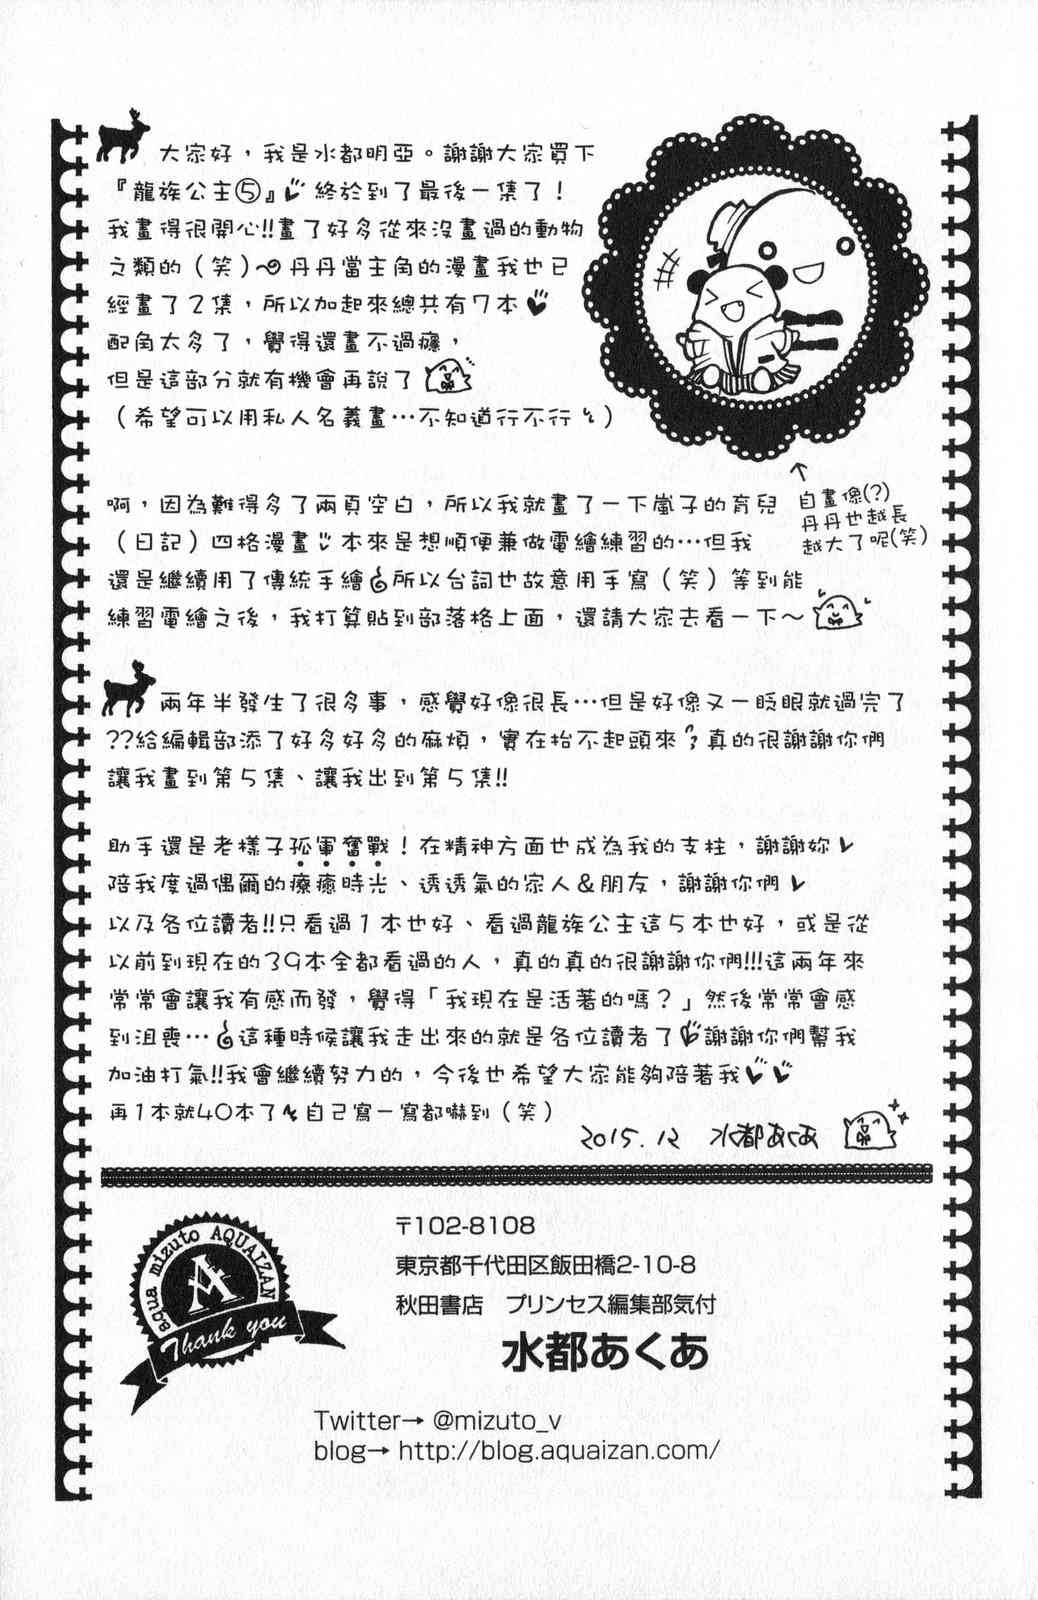 大家好，我是水都明亞。謝謝大家買下
『龍族公主⑤』終於到了最後一集了！
我畫得很開心!!畫了好多從來沒畫過的動物
之類的（笑）丹丹當主角的漫畫我也已
經畫了2集，所以加起來總共有7本
配角太多了，覺得還畫不過癮，
但是這部分就有機會再說了
（希望可以用私人名義畫…不知道行不行）
啊，因為難得多了兩頁空白，所以我就畫了一下嵐子的育兒
（日記）四格漫畫本來是想順便兼做電繪練習的…但我
還是繼續用了傳統手繪所以台詞也故意用手寫（笑）等到能
練習電繪之後，我打算貼到部落格上面，還請大家去看一下～
↑
自畫像(?)
丹丹也越長
越大了呢(笑)
兩年半發生了很多事，感覺好像很長…但是好像又一眨眼就過完了
??給編輯部添了好多好多的麻煩，實在抬不起頭來真的很謝謝你們
讓我畫到第5集、讓我出到第5集!!
助手還是老樣子孤軍奮戰！在精神方面也成為我的支柱，謝謝妳
陪我度過偶爾的療癒時光、透透氣的家人＆朋友，謝謝你們
以及各位讀者!!只看過1本也好、看過龍族公主這5本也好，或是從
以前到現在的39本全都看過的人，真的真的很謝謝你們!!!這兩年來
常常會讓我有感而發，覺得「我現在是活著的嗎？」然後常常會感
到沮喪…這種時候讓我走出來的就是各位讀者了謝謝你們幫我
加油打氣!!我會繼續努力的，今後也希望大家能夠陪著我
再1本就40本了自己寫一寫都嚇到（笑）
2015.12 水都あくあ
aqua mizuto AQUAIZAN
A
Thank you
〒102-8108
東京都千代田区飯田橋2-10-8
秋田書店　プリンセス編集部気付
水都あくあ
Twitter→ @mizuto_v
blog→ http://blog.aquaizan.com/